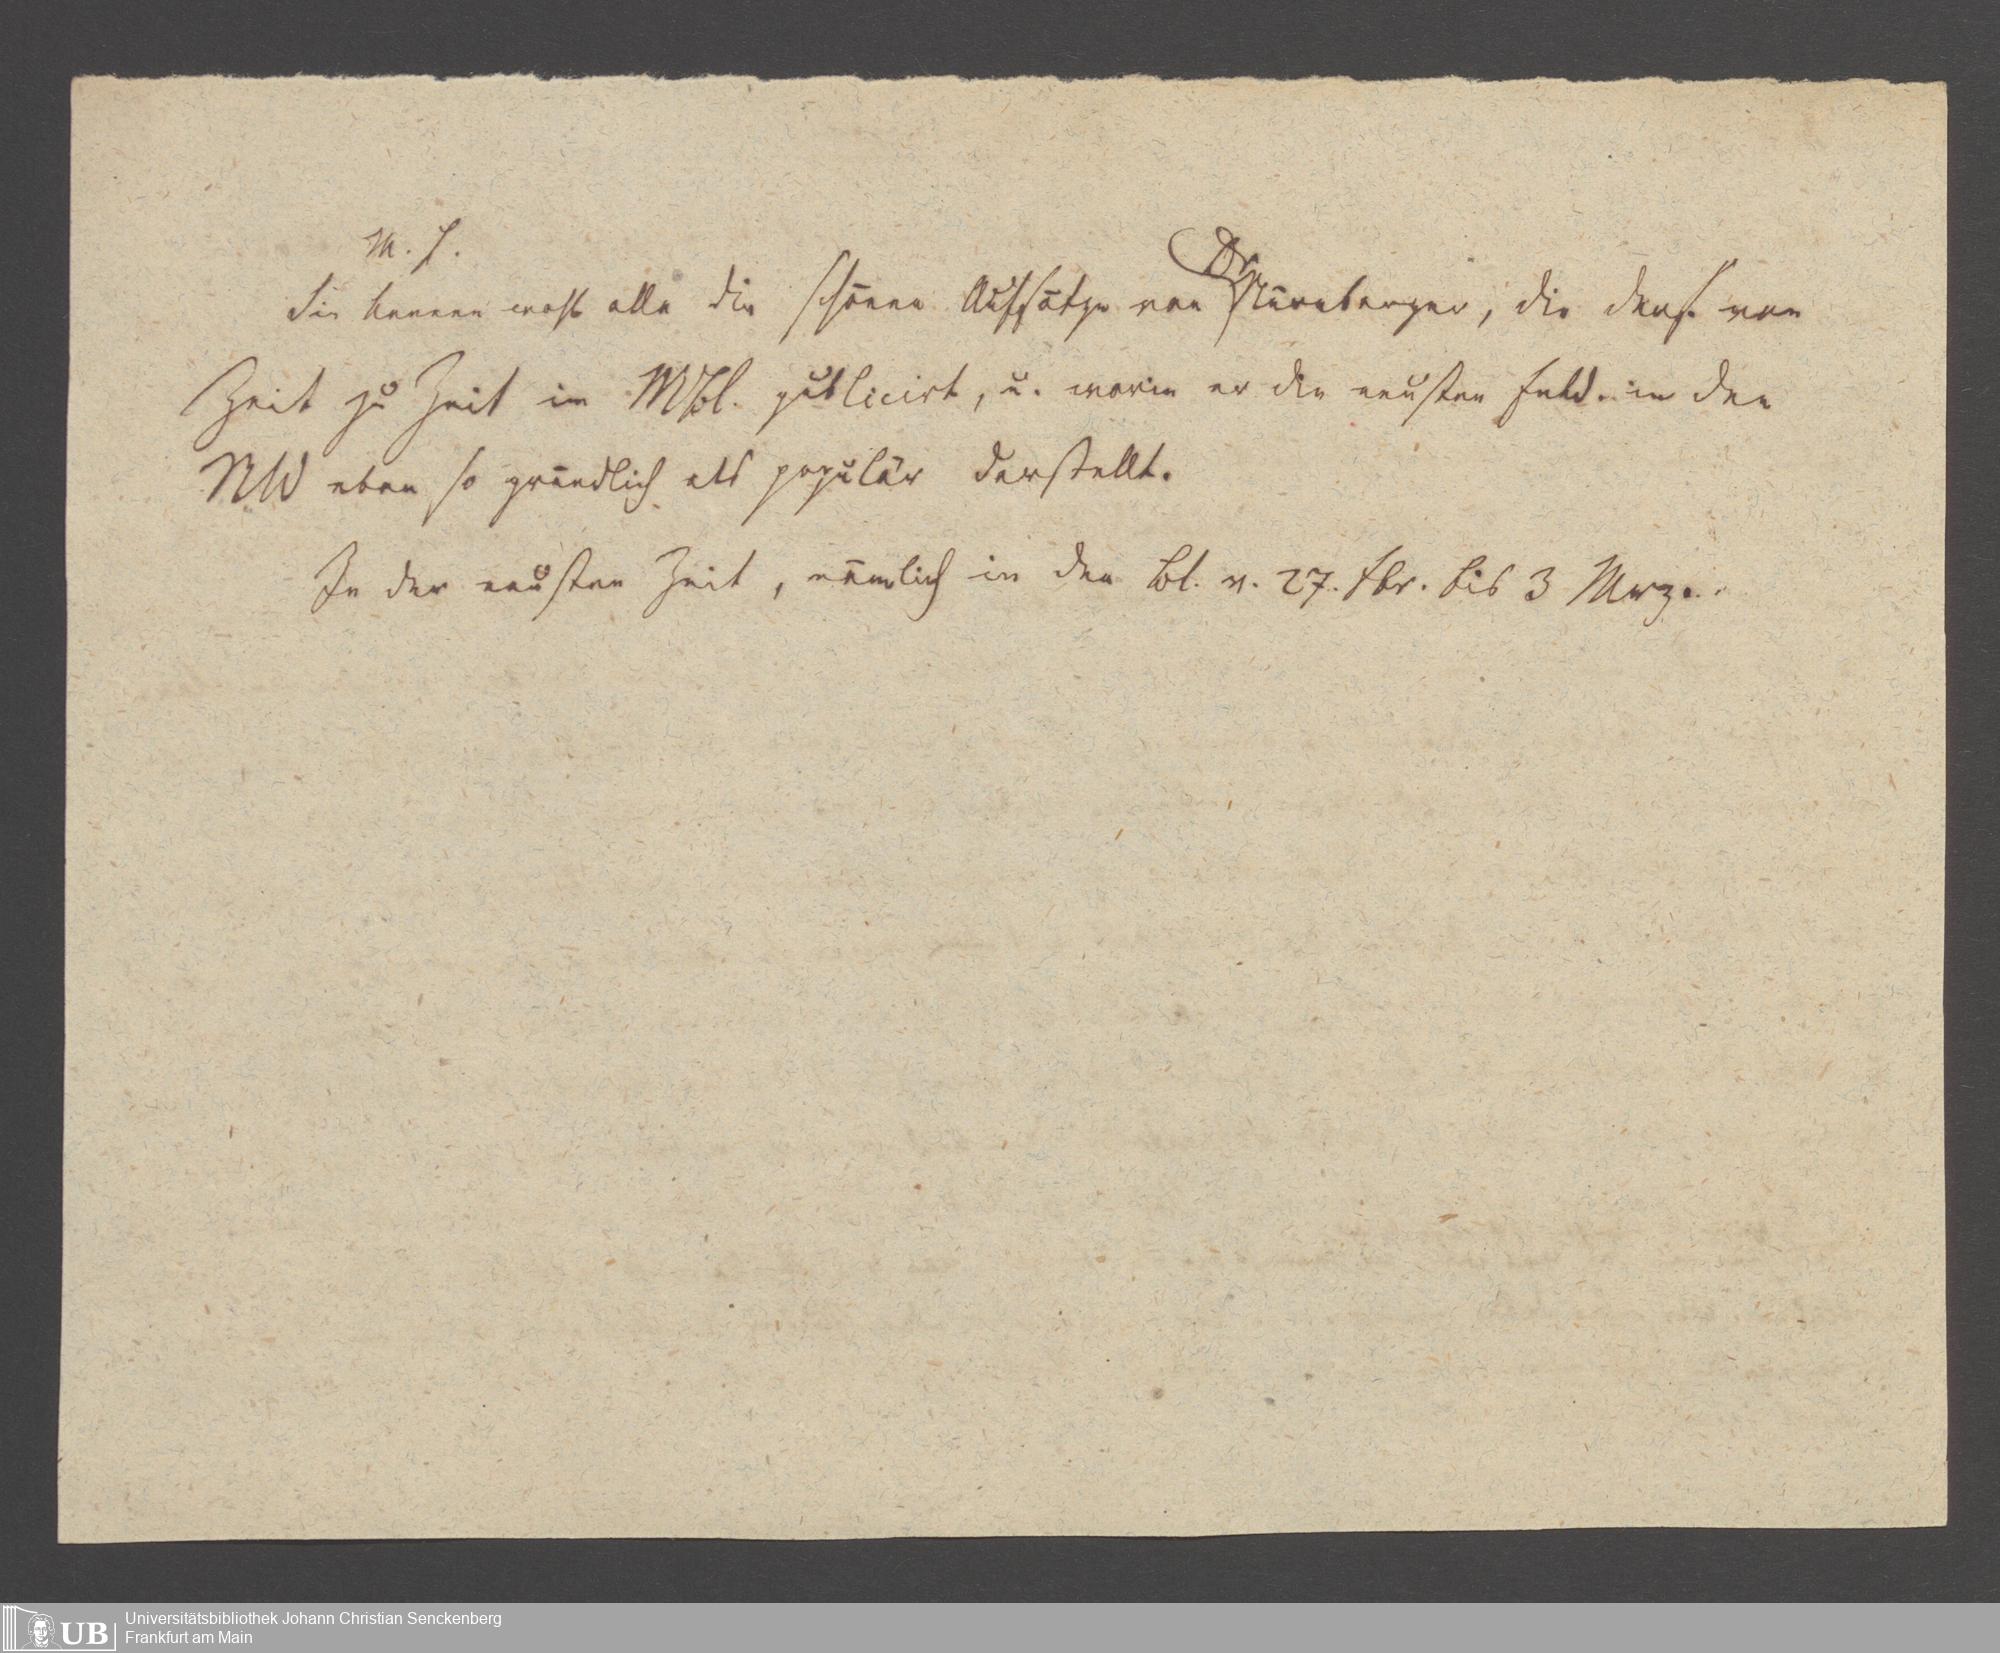 M. H.
Sie kennen wohl alle die schönen Aufsätze von Dr Nürnberger, die ders. von
Zeit zu Zeit im MBl. publicirt, u. worin er die neusten Entd. in den
NW eben so gründlich als populär darstellt.
In der neusten Zeit, nämlich in den Bl. v. 27. Fbr. bis 3 Mrz.
UB
Universitätsbibliothek Johann Christian Senckenberg
Frankfurt am Main